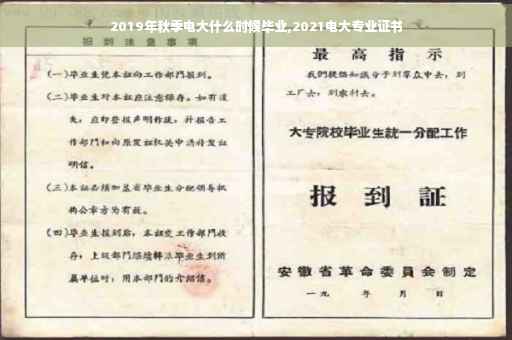 2019年秋季电大什么时候毕业,2021电大专业证书
报到注意事项
(一)毕业生凭本证向工作部门报到。
(二)毕业生对本证应注意保存。如有遗
失,应即登报声明作废,并报告工
作部门和向原发证机关申请补发证
明信。
(三)本证必须加盖省毕业生分配领导机
构公章方为有效。
(四)毕业生报到后,本证交工作部门收
存;上级部门继续转派毕业生到所
属单位时,用本部门的介绍信。
最高指示
我们提倡知识分子到群众中去,到
工厂去,到农村去。
大专院校毕业生統一分配工作
报到証
安徽省革命委員会制定
一九 年 月 日